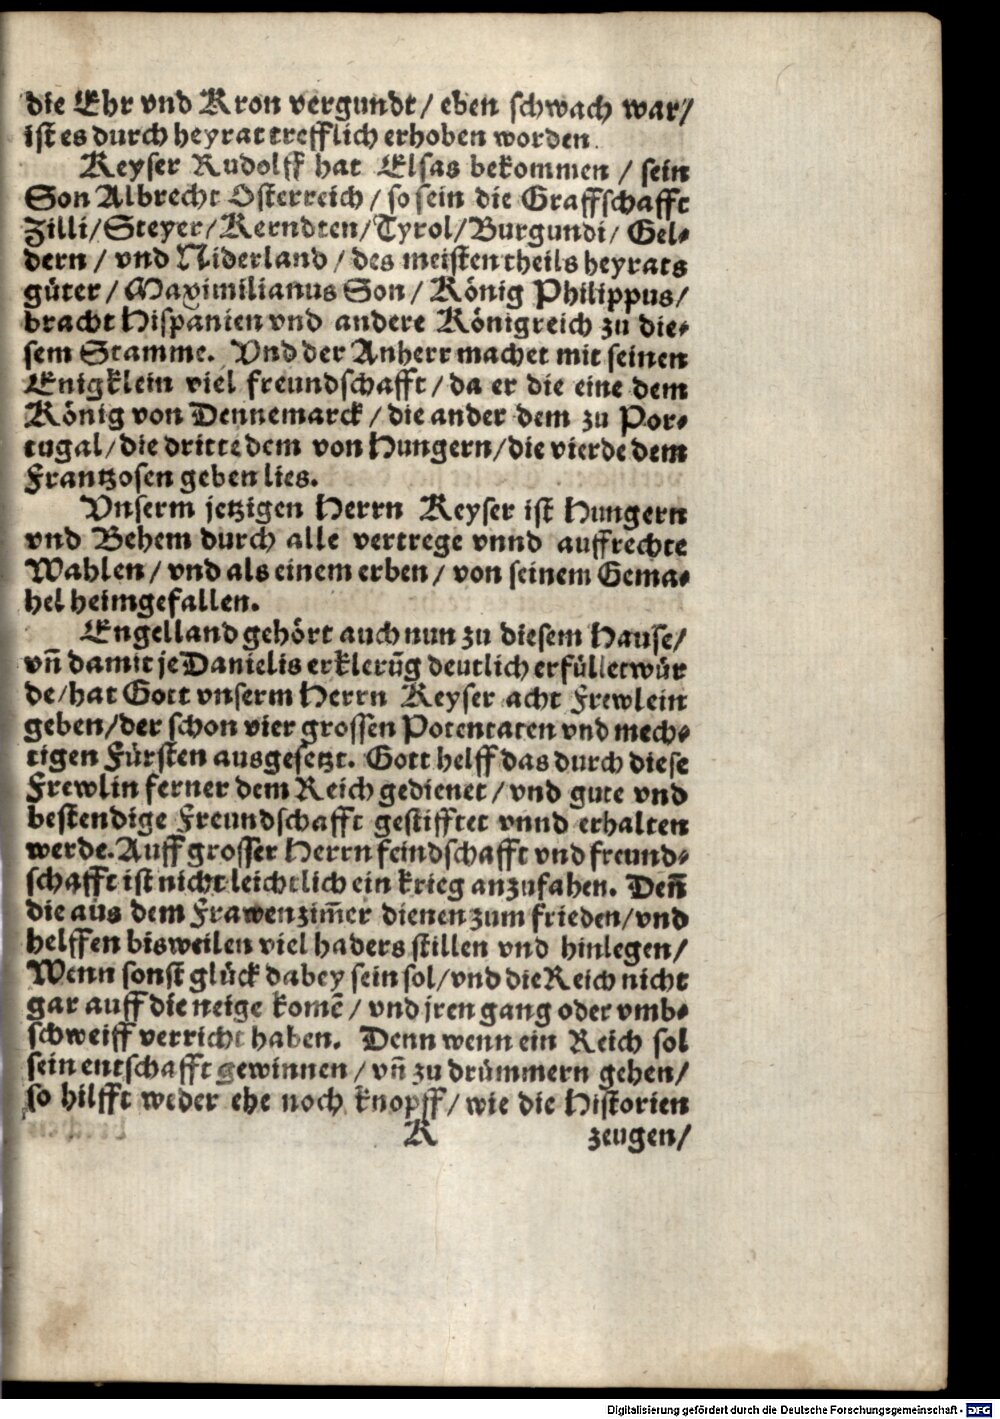 die Ehr vnd Kron vergundt / eben schwach war /
ist es durch heyrat trefflich erhoben worden.
Keyser Rudolff hat Elsas bekommen / sein
Son Albrecht Osterreich / so sein die Graffschafft
Zilli / Steyer / Kerndten / Tyrol / Burgundi / Gel⸗
dern / vnd Niderland / des meisten theils heyrats
güter / Maximilianus Son / König Philippus /
bracht Hispanien vnd andere Königreich zu die⸗
sem Stamme. Vnd der Anherr machet mit seinen
Enigklein viel freundschafft / da er die eine dem
König von Dennemarck / die ander dem zu Por⸗
tugal / die dritte dem von Hungern / die vierde dem
Frantzosen geben lies.
Vnserm jetzigen Herrn Keyser ist Hungern
vnd Behem durch alle vertrege vnnd auffrechte
Wahlen / vnd als einem erben / von seinem Gema⸗
hel heimgefallen.
Engelland gehört auch nun zu diesem Hause /
vñ damit je Danielis erklerũg deutlich erfüllet wür
de / hat Gott vnserm Herrn Keyser acht Frewlein
geben / der schon vier grossen Potentaten vnd mech⸗
tigen Fürsten ausgesetzt. Gott helff das durch diese
Frewlin ferner dem Reich gedienet / vnd gute vnd
bestendige Freundschafft gestifftet vnnd erhalten
werde. Auff grosser Herrn feindschafft vnd freund⸗
schafft ist nicht leichtlich ein krieg anzufahen. Deñ
die aus dem Frawenzim̃er dienen zum frieden / vnd
helffen bisweilen viel haders stillen vnd hinlegen /
Wenn sonst glück dabey sein sol / vnd die Reich nicht
gar auff die neige komẽ / vnd jren gang oder vmb⸗
schweiff verricht haben. Denn wenn ein Reich sol
sein entschafft gewinnen / vñ zu drümmern gehen /
so hilfft weder ehe noch knopff / wie die Historien
K zeugen /
Digitalisierung gefördert durch die Deutsche Forschungsgemeinschaft - DFG